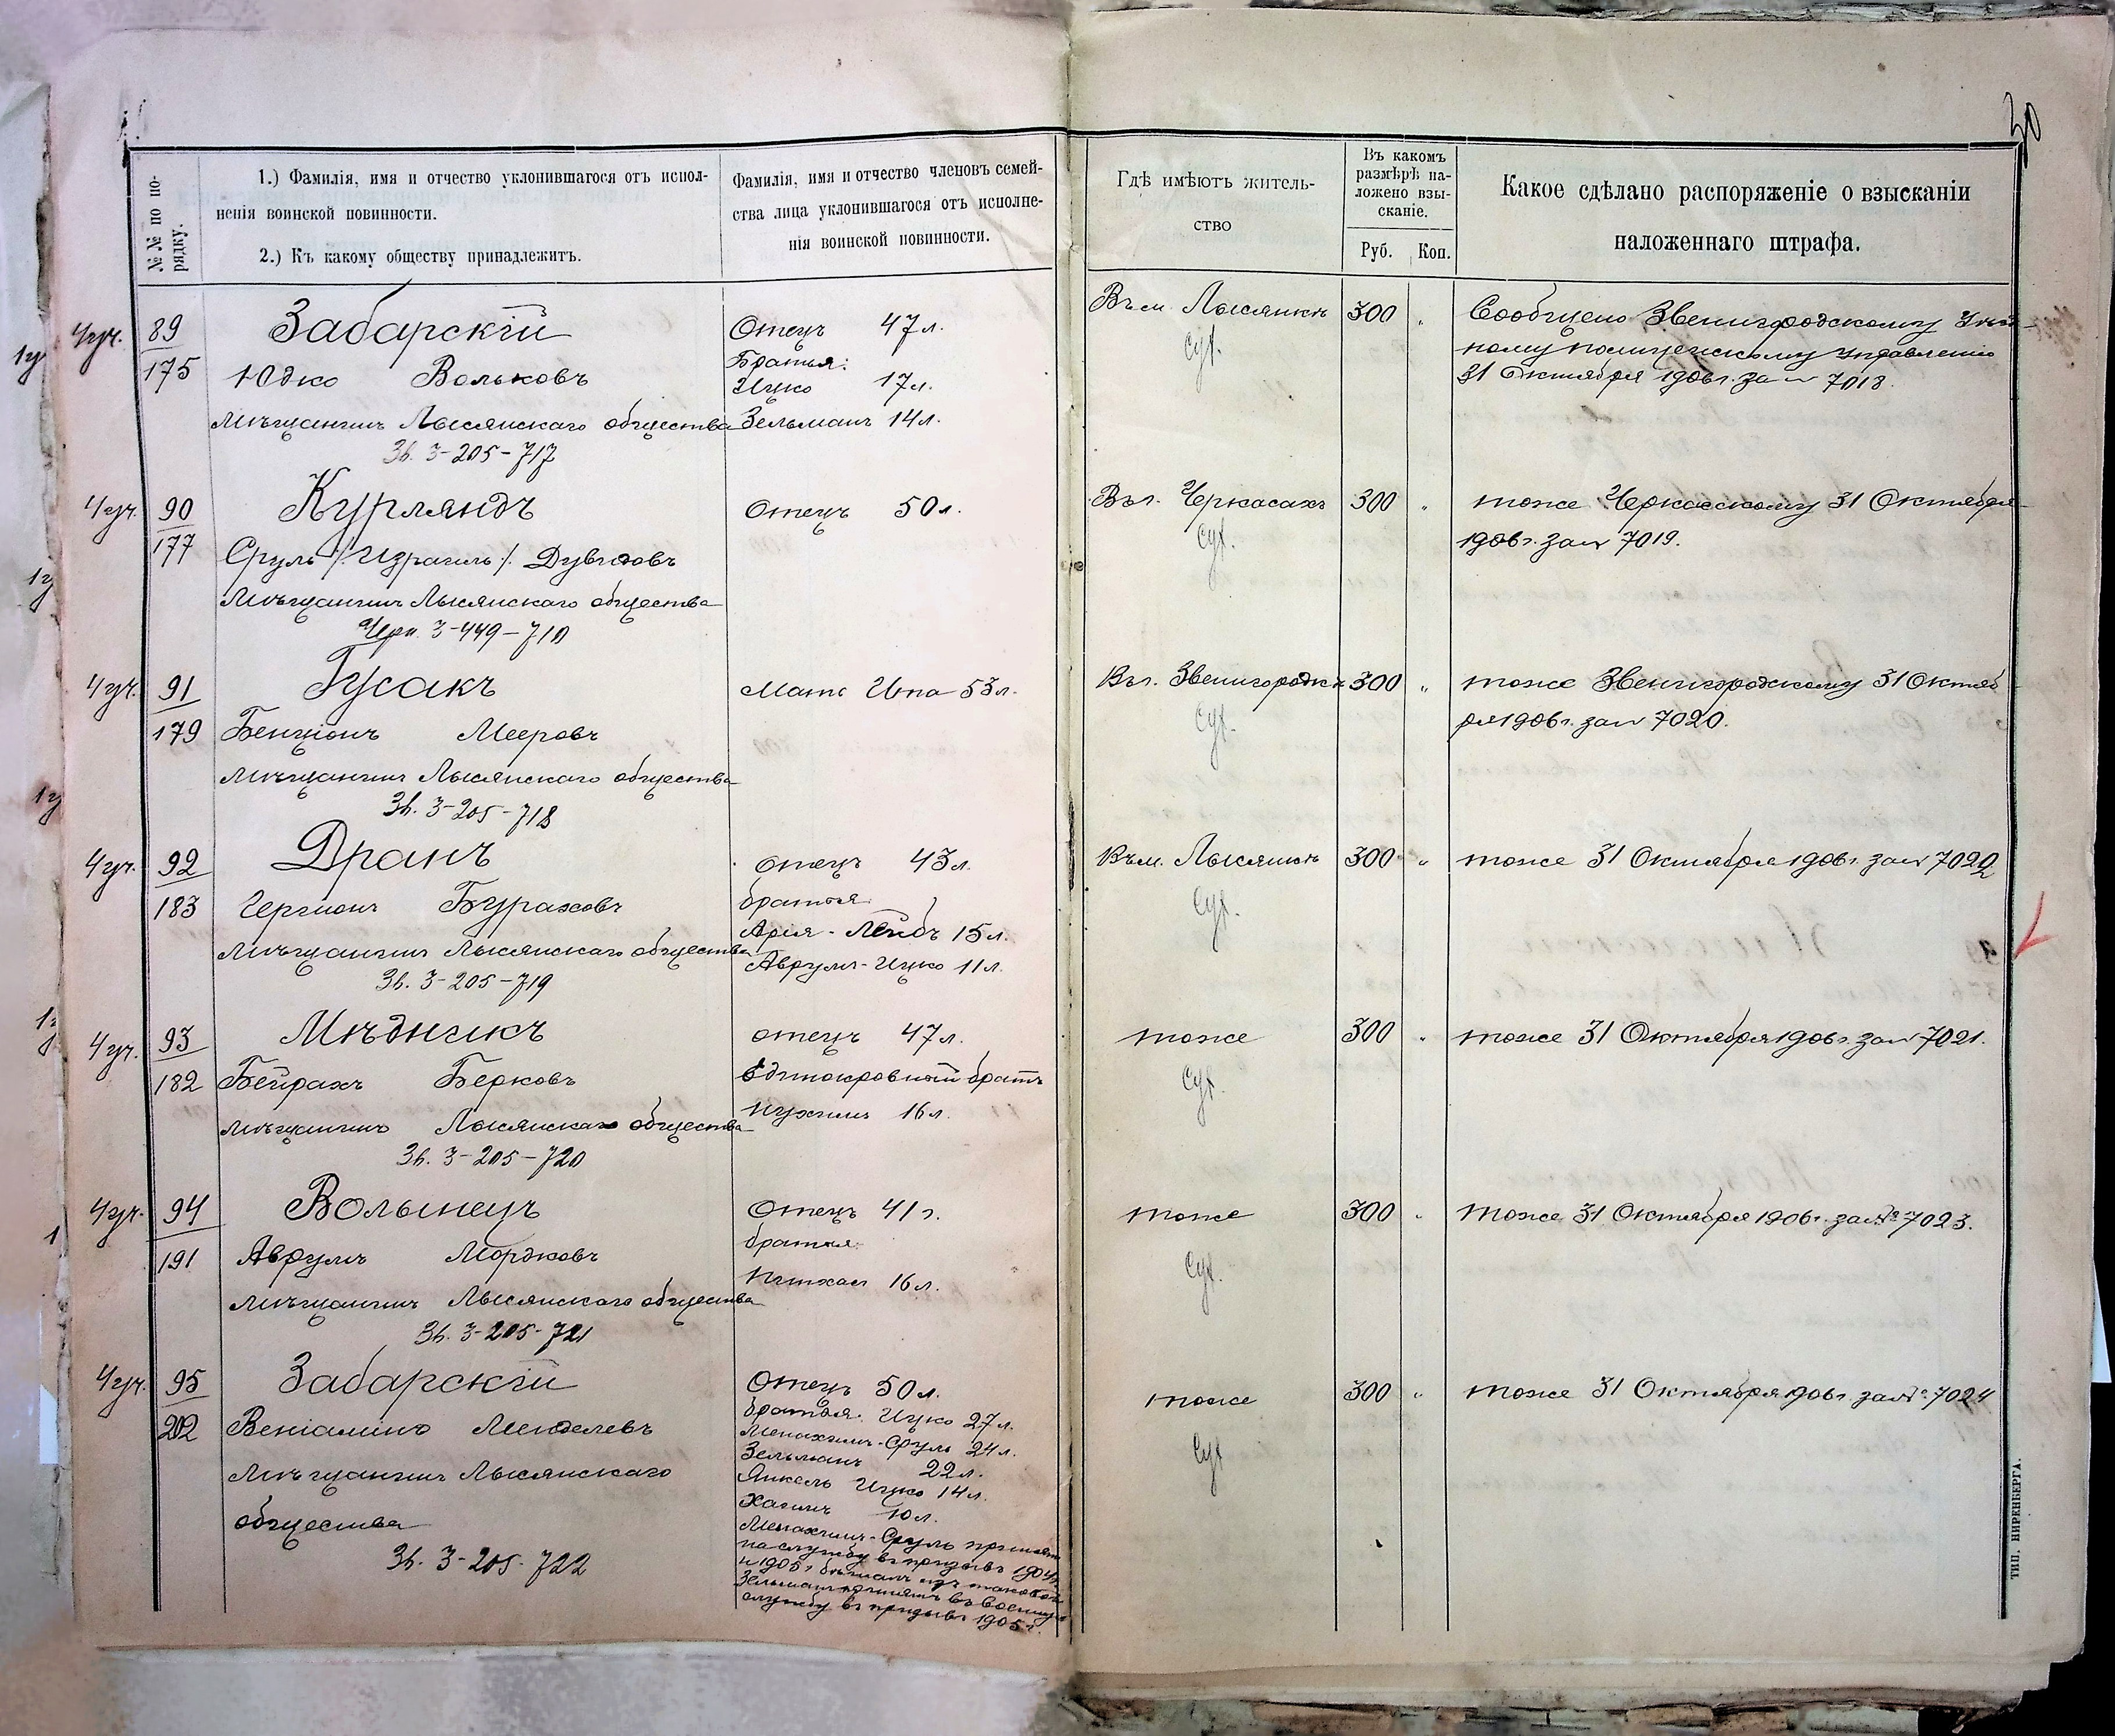 30
№№ по по-
рядку.
1.) Фамилія, имя и отчество уклонившагося отъ испол-
ненія воинской повинности.
2.) Къ какому обществу принадлежитъ.
Фамилія, имя и отчество членовъ семей-
ства лица уклонившагося отъ исполне-
нія воинской повинности.
Гдѣ имѣютъ житель-
ство
Въ какомъ
размѣрѣ на-
ложено взы-
сканіе.
Руб. Коп.
Какое сдѣлано распоряженіе о взысканіи
наложеннаго штрафа.
4 уч.
89
175
Забарскій
Юдко Вольковъ
Мѣщанинъ Лысянскаго общества
Зв. 3-205-717
Отецъ 47 л.
Братья:
Ицко 17 л.
Зельманъ 14 л.
Въ м. Лысянкѣ
300 "
Сообщено Звенигородскому Уѣзд-
ному полицейскому управленію
31 Октября 1906 г. за № 7018.
4 уч.
90
177
Курляндъ
Сруль /: Израиль :/ Дувидовъ
Мѣщанинъ Лысянскаго общества
Черк. 3-449-710
Отецъ 50 л.
Въ г. Черкасахъ
300 "
тоже Черкасскому 31 Октября
1906 г. за № 7019.
4 уч.
91
179
Гусакъ
Бенціонъ Мееровъ
Мѣщанинъ Лысянскаго общества
Зв. 3-205-718
Мать Ита 53 л.
Въ г. Звенигородкѣ
300 "
тоже Звенигородскому 31 Октяб-
ря 1906 г. за № 7020.
4 уч.
92
183
Дранъ
Гершонъ Бураховъ
Мѣщанинъ Лысянскаго общества
Зв. 3-205-719
Отецъ 43 л.
братья
Арія-Лейбъ 15 л.
Аврумъ-Ицко 11 л.
Въ м. Лысянкѣ
300 "
тоже 31 Октября 1906 г. за № 7022
4 уч.
93
182
Мѣдникъ
Бейрахъ Берковъ
Мѣщанинъ Лысянскаго общества
Зв. 3-205-720
отецъ 47 л.
Единокровный братъ
Нухимъ 16 л.
тоже
300 "
тоже 31 Октября 1906 г. за № 7021.
4 уч.
94
191
Волынецъ
Аврумъ Мордковъ
Мѣщанинъ Лысянскаго общества
Зв. 3-205-721
Отецъ 41 г.
братья:
Пинхасъ 16 л.
тоже
300 "
тоже 31 Октября 1906 г. за № 7023.
4 уч.
95
202
Забарскій
Веніаминъ Менделевъ
Мѣщанинъ Лысянскаго
общества
Зв. 3-205-722
Отецъ 50 л.
братья: Ицко 27 л.
Менахимъ-Сруль 24 л.
Зельманъ 22 л.
Янкель Ицко 14 л.
Хаимъ 10 л.
Менахимъ-Сруль принятъ
на службу въ призывъ 1904 г.
и 1905 г. бѣжалъ изъ таковой
Зельманъ принятъ въ военную
службу въ призывъ 1905 г.
тоже
300 "
тоже 31 Октября 1906 г. за № 7024
ТИП. НИРЕНБЕРГА.